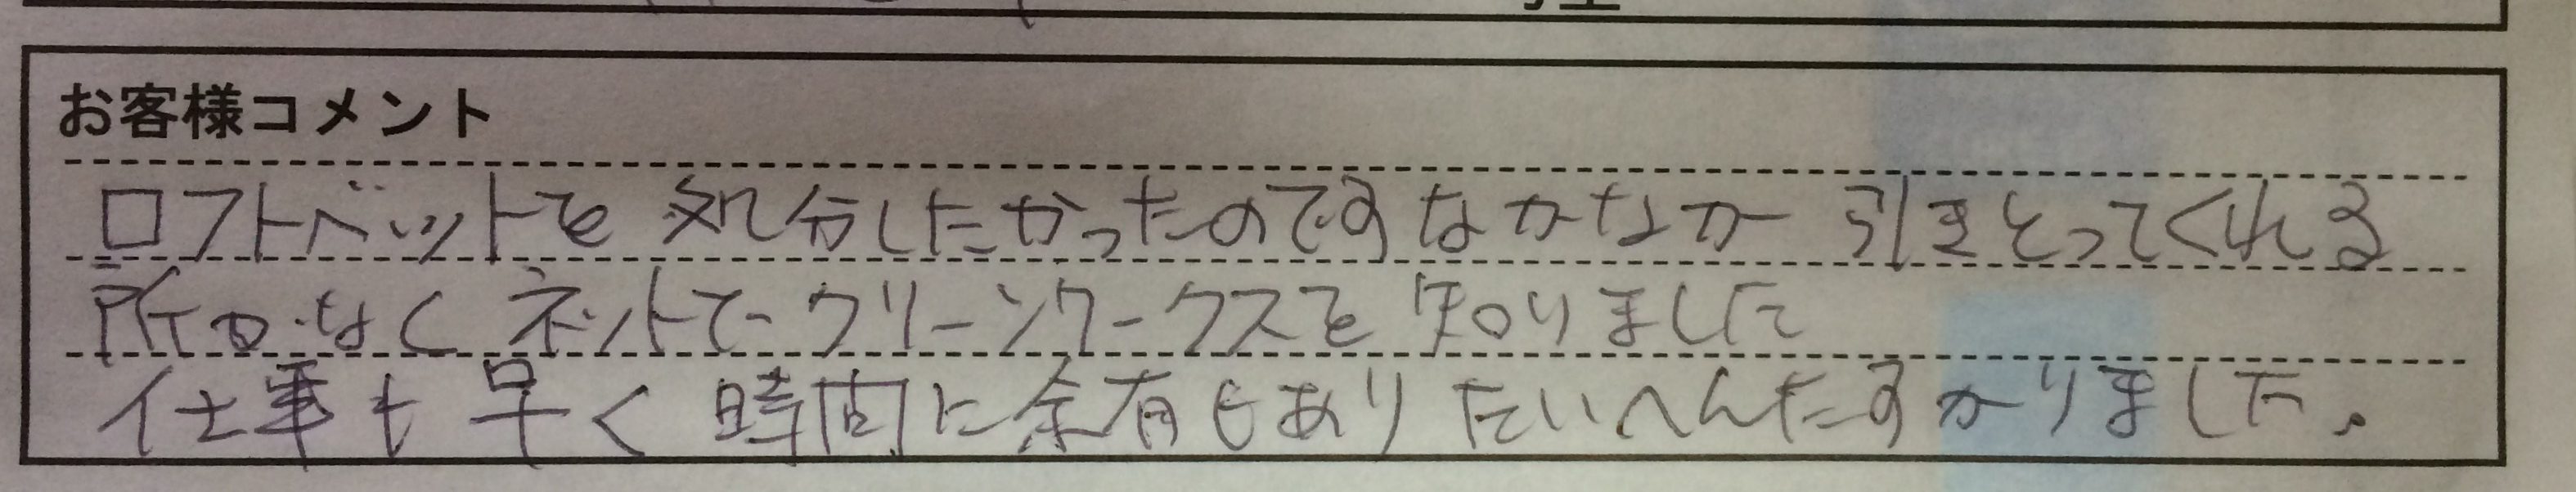 お客様コメント
ロフトベットを処分したかったのですなかなか引きとってくれる
所がなくネットでクリーンワークスを知りました
仕事も早く時間に余有もありたいへんたすかりました。